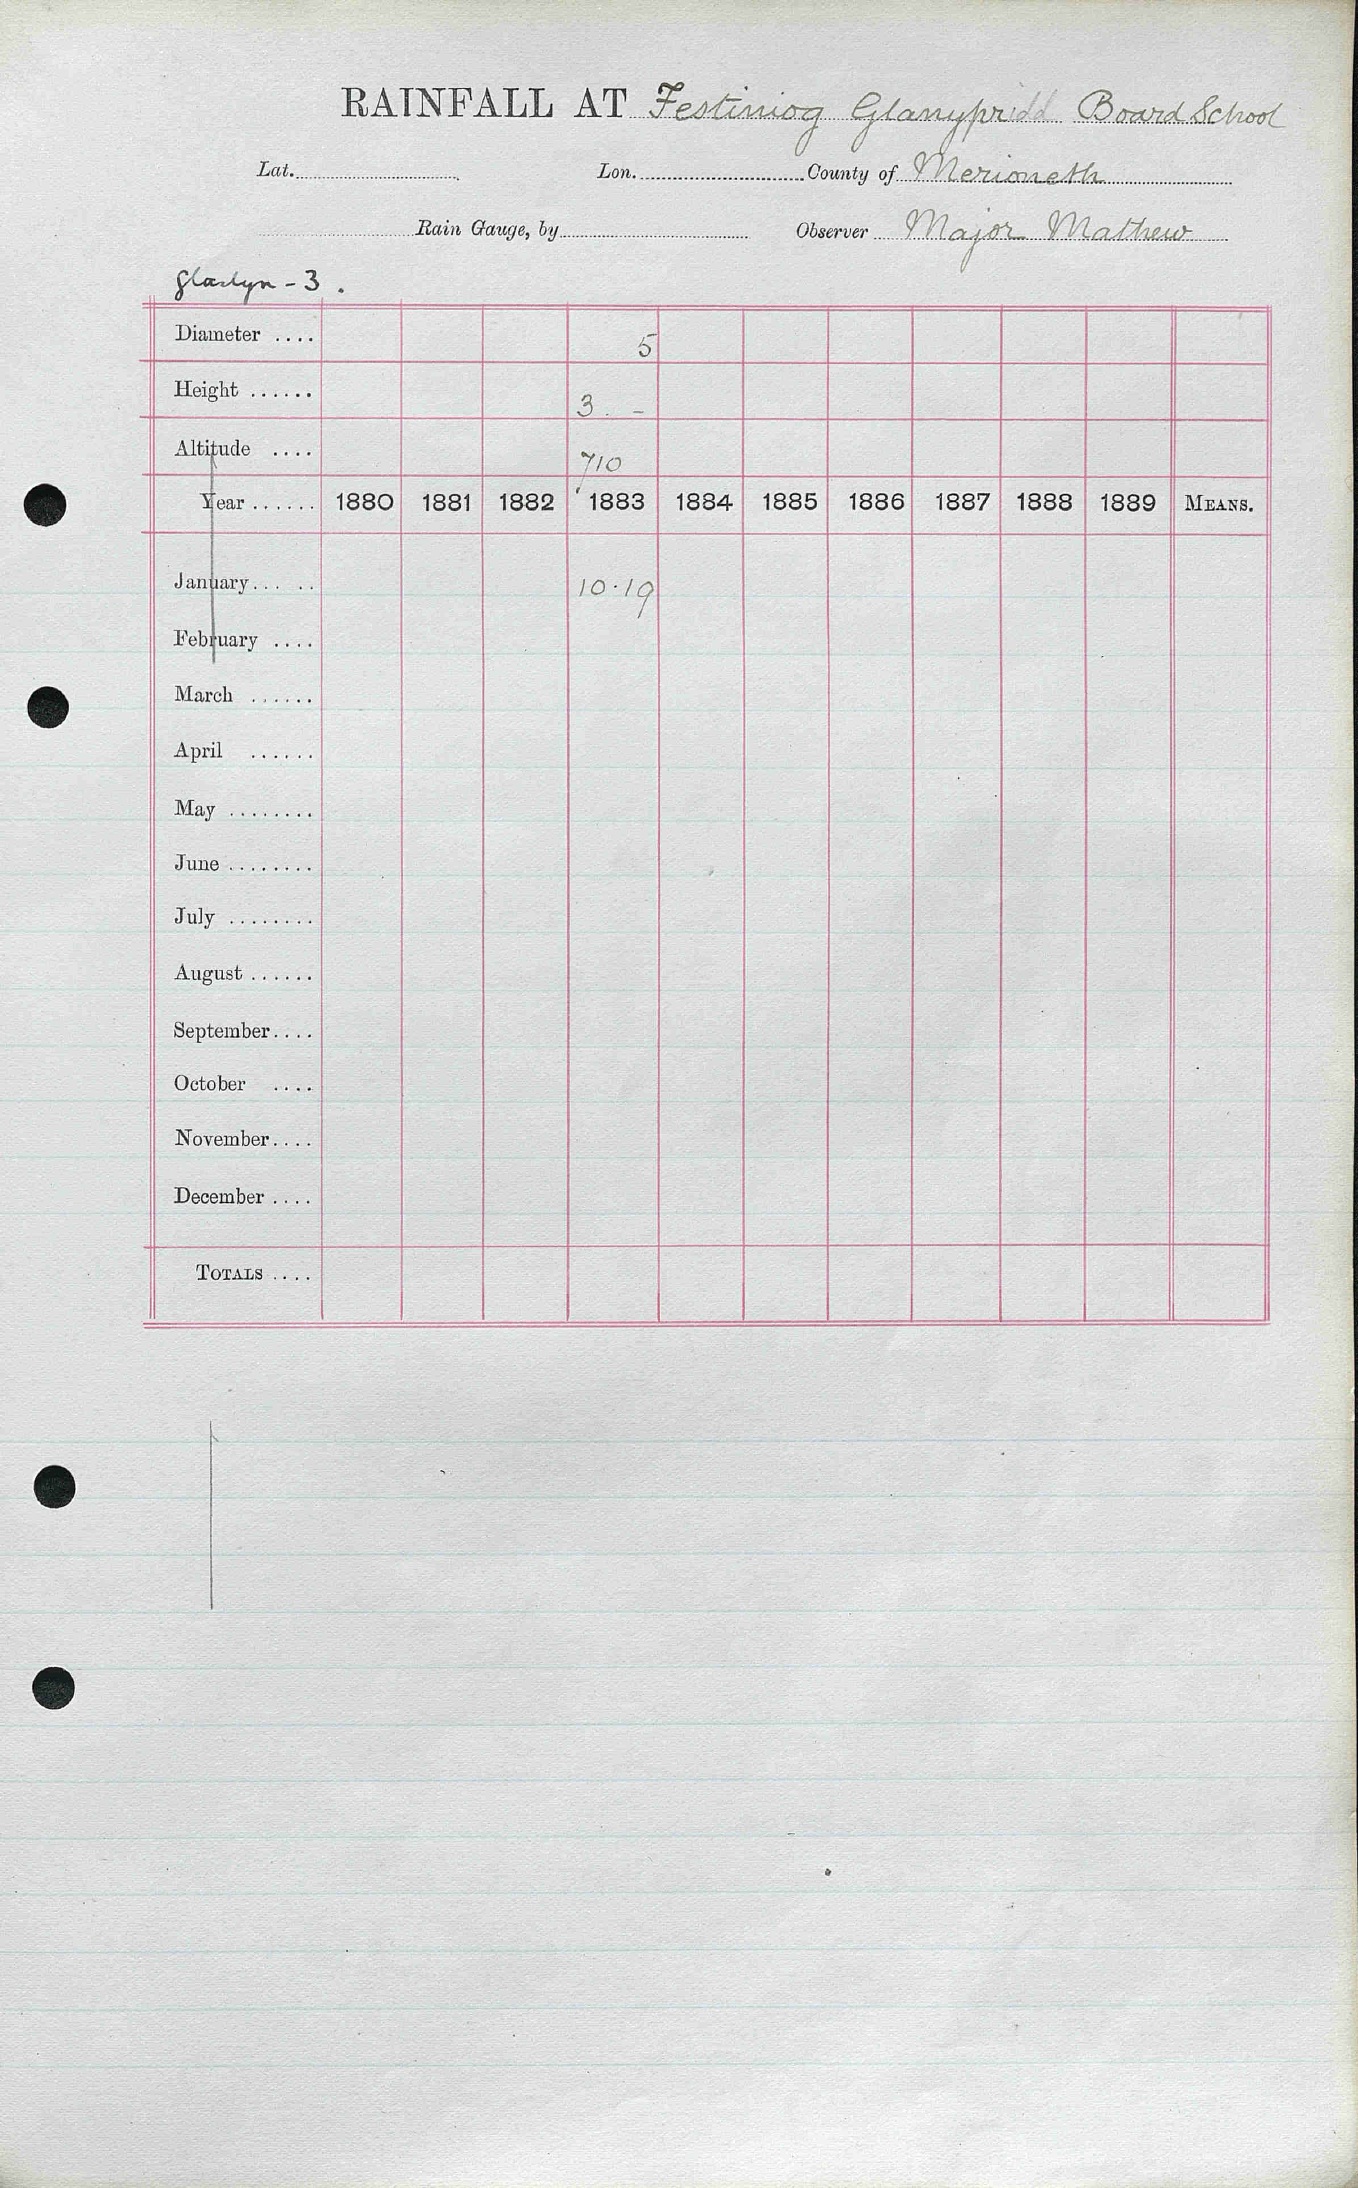 RAINFALL AT Festiniog Glanypridd Board School
Lat. Lon. County of Merioneth
Rain Gauge, by Observer Major Mathew
Glaslyn - 3 .
Diameter .... 5
Height ...... 3 . -
Altitude .... 710
Year ...... 1880 1881 1882 1883 1884 1885 1886 1887 1888 1889 MEANS.
January... .. 10.19
February ....
March ......
April ......
May ........
June ........
July ........
August ......
September....
October ....
November....
December ....
TOTALS ....